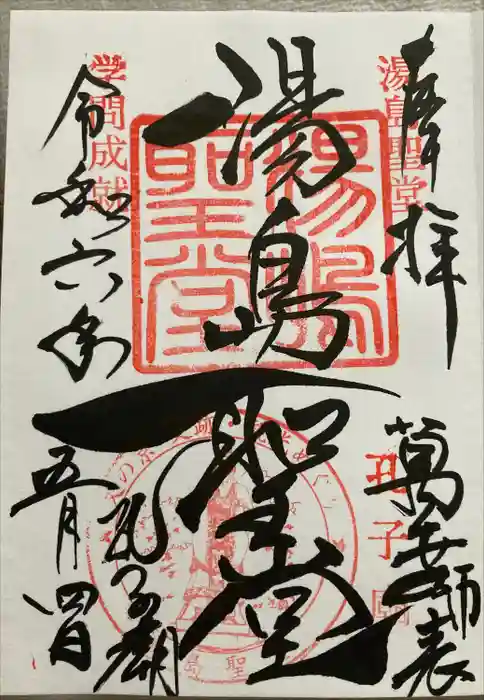 奉拝
湯島聖堂
萬世師表
孔子廟
湯島聖堂
湯島聖堂
孔子廟
学問成就
令和六年
五月四日